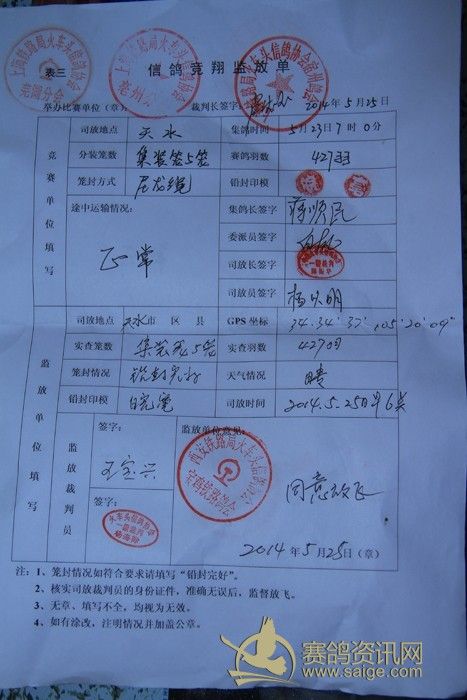 表三
信鸽竞翔监放单
举办比赛单位（章） 裁判长签字： 2014年5月25日
竞赛单位填写
司放地点 天水 集鸽时间 5月23日7时0分
分装笼数 集装笼5笼 赛鸽羽数 427羽
笼封方式 尼龙绳 铅封印模
途中运输情况： 正常
集鸽长签字 蒋顺民
委派员签字
司放长签字
司放员签字 杨火明
司放地点 天水市 区 县 GPS 坐标 34°34′37″ 105°20′09″
监放单位填写
实查笼数 集装笼5笼 实查羽数 427羽
笼封情况 铅封完好 天气情况 晴
铅封印模 司放时间 2014.5.25日
监放裁判员
签字： 王宝兴
签字：
监放单位意见：
西安铁路局火车头信鸽协会
宝鸡铁路鸽会
同意放飞
2014年5月25日（章）
注：1、笼封情况如符合要求请填写“铅封完好”。
2、核实司放裁判员的身份证件，准确无误后，监督放飞。
3、无章、填写不全，均视为无效。
4、如有涂改，注明情况并加盖公章。
赛鸽资讯网
www.saige.com